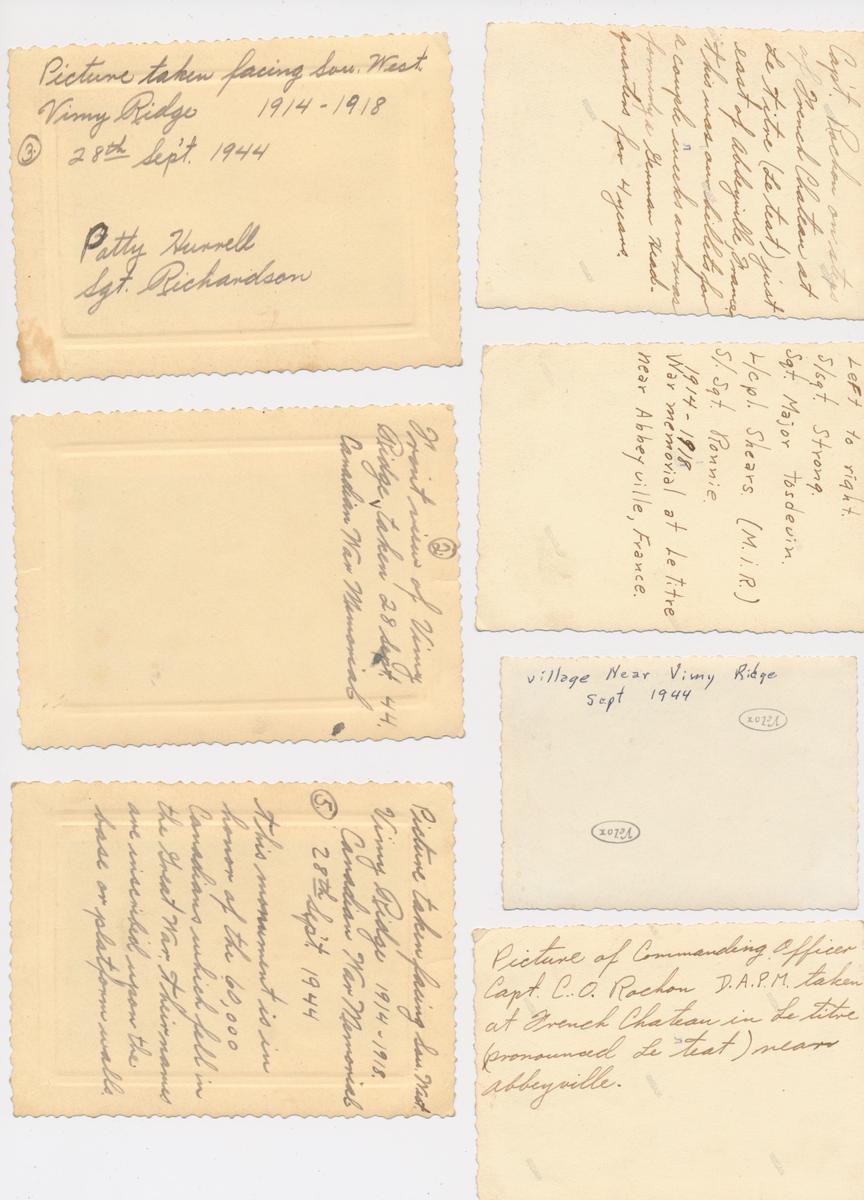 Picture taken facing Sou. West.
Vimy Ridge 1914-1918
③ 28th Sep't. 1944
Patty Hurrell
Sgt. Richardson
②
Front view of Vimy
Ridge, taken 28 Sept. 44.
Canadian War Memorial
Picture taken facing Sou. West.
Vimy Ridge 1914-1918.
Canadian War Memorial
⑤ 28th Sep't 1944
This monument is in
honor of the 60,000
Canadians which fell in
the Great War. Their names
are inscribed upon the
base or platform walls.
Cap't Rochon on steps
of French Chateau at
Le Titre (Le teat) just
east of Abbeyville, France.
This was our billets for
a couple weeks and was
formerly a German Head-
quarters for 4 years.
Left to right.
S/sgt. Strong.
Sgt Major Tosdevin.
L/cpl. Shears. (M.I.R.)
S/. Sgt. Ronnie.
1914-1918
War memorial at Le titre
near Abbeyville, France.
Village Near Vimy Ridge
Sept 1944
VELOX
VELOX
Picture of Commanding Officer
Capt. C. O. Rochon D.A.P.M. taken
at French Chateau in Le titre
(pronounced Le teat) near
Abbeyville.